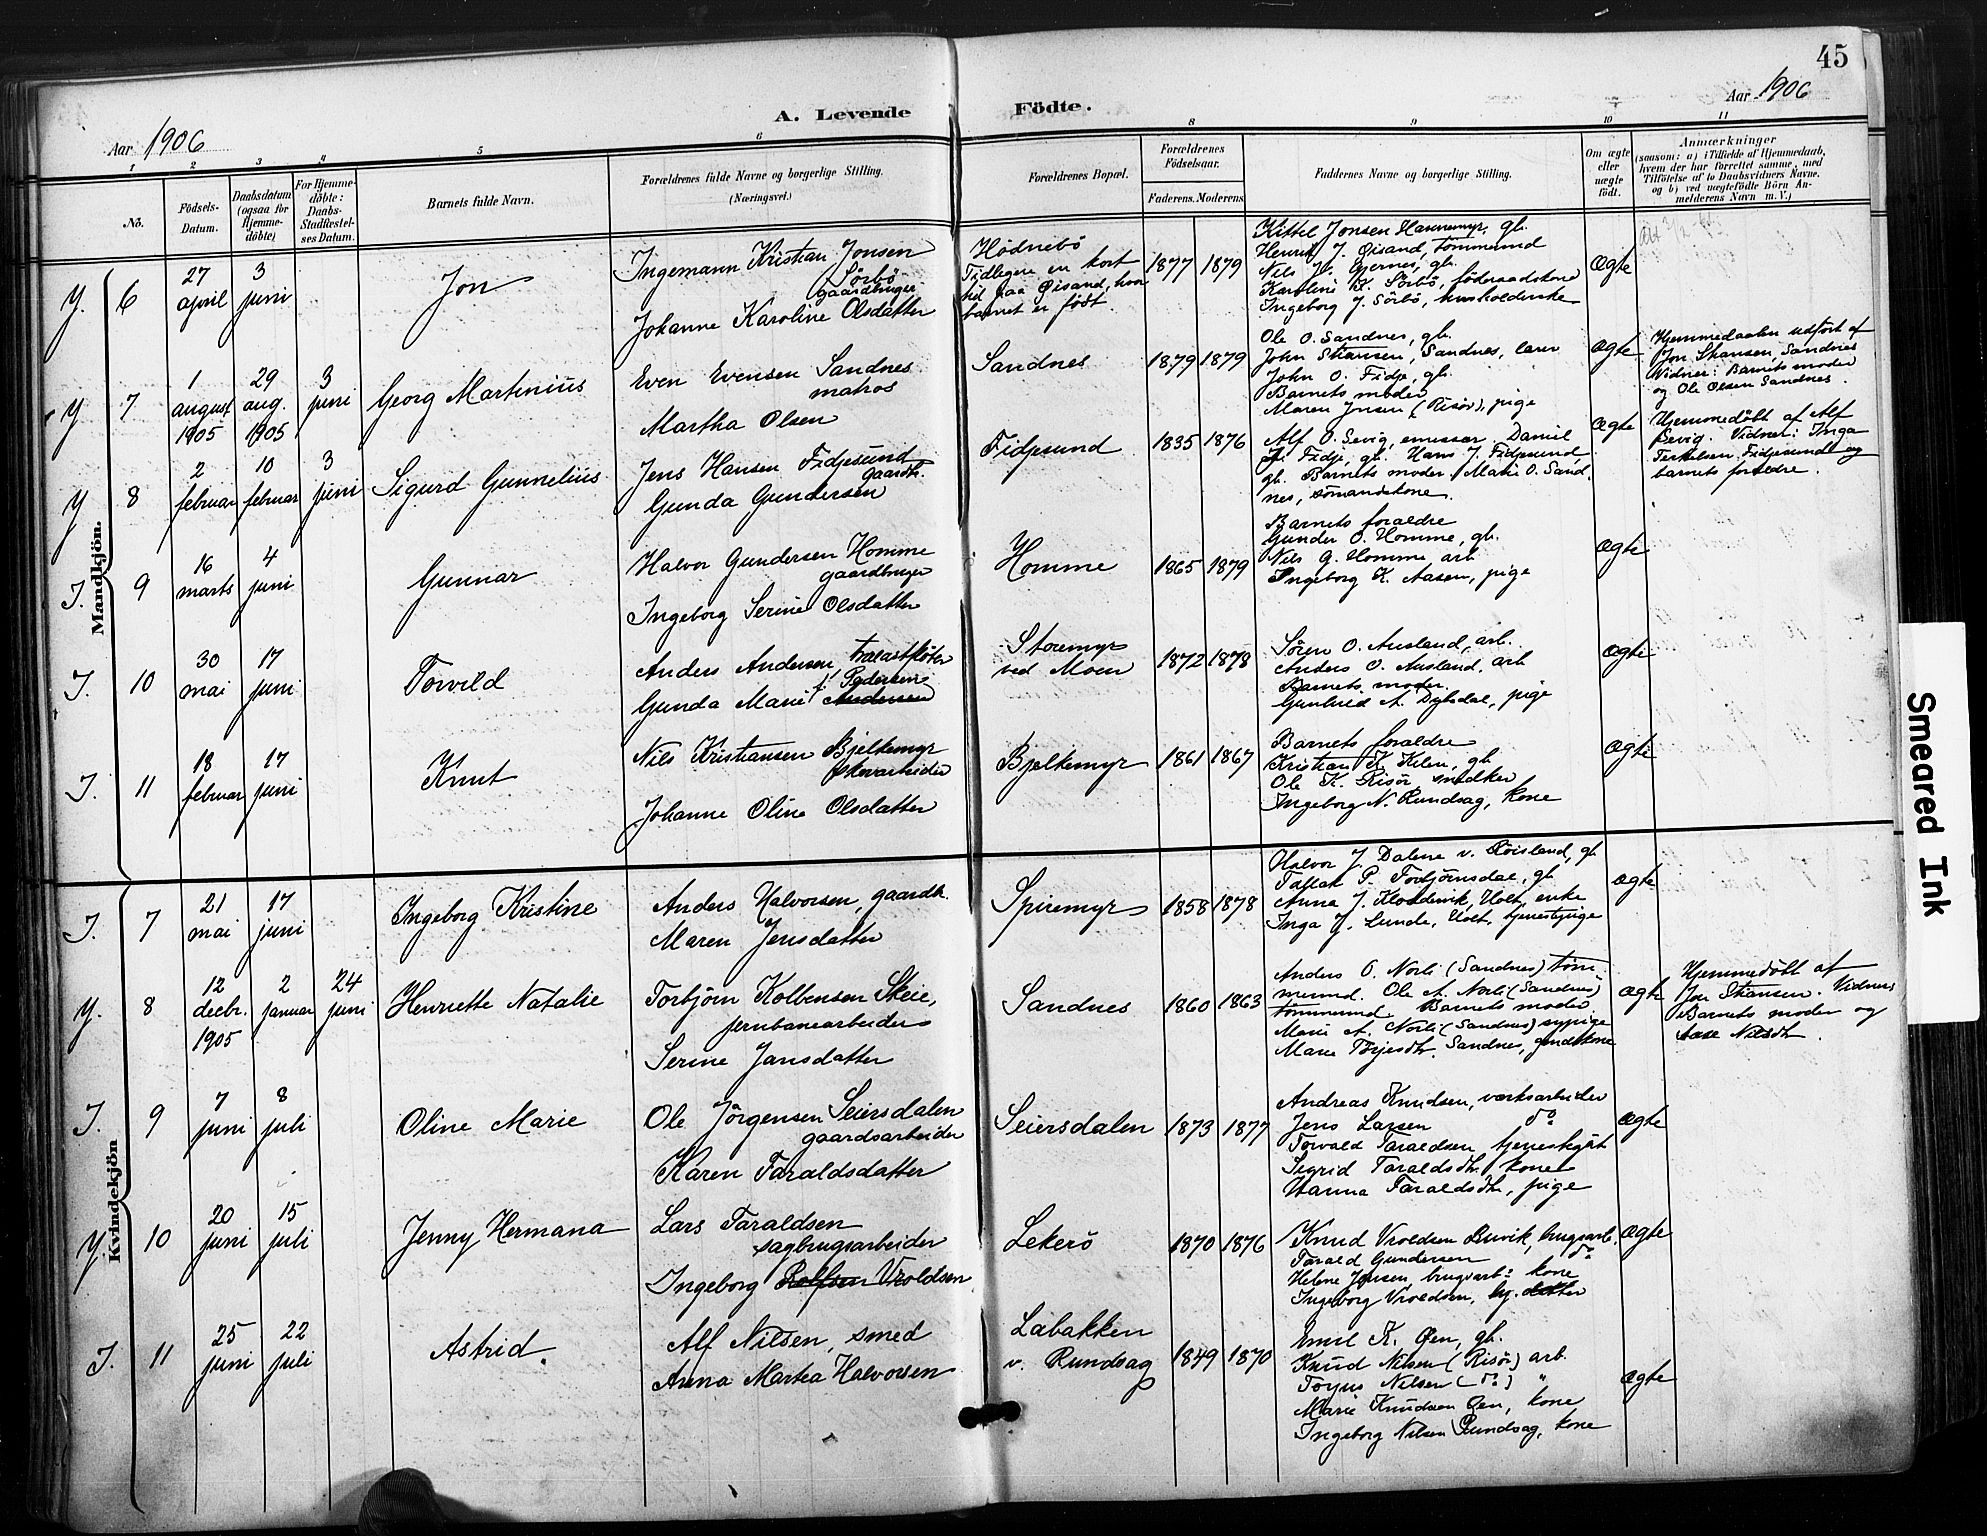 45
Aar 1906
A. Levende Födte.
Aar 1906
1 2 3 4 5 6 8 9 10 11
No.
Födsels-Datum.
Daabsdatum (ogsaa for Hjemme-döbte)
For Hjemme-döbte: Daabs-Stadfæstel-ses Datum.
Barnets fulde Navn.
Forældrenes fulde Navne og borgerlige Stilling.
(Næringsvei.)
Forældrenes Bopæl.
Forældrenes Födselsaar.
Faderens. Moderens.
Faddernes Navne og borgerlige Stilling.
Om ægte eller uægte födt.
Anmærkninger
(saasom: a) i Tilfælde af Hjemmedaab,
hvem der har forrettet samme, med
Tilföielse af to Daabsvidners Navne.
og b) ved uægtefödte Börn An-
melderens Navn m. V.)
Mandkjön.
Y. 6
27 april
3 juni
Jon
Ingemann Kristian Jonsen
Sörbö
gaardbruger
Johanne Karoline Olsdatter
Hödnebö
Tidligere en kort
tid paa Øisand, hvor
barnet er født.
1877 1879
Kittel Jonsen Hannemyr, gb.
Henrik J. Øisand, tømmermand
Nils H. Gjernes, gb.
Karoline K. Sörbö, föderaadskone
Ingeborg J. Sörbö, husholderske
Ægte
Y 7
1 august 1905
29 aug. 1905
3 juni
Georg Martinius
Even Evensen Sandnes
matros
Martha Olsen
Sandnes
1879 1879
Ole O. Sandnes, gb.
John Stiansen, Sandnes, lærer
John O. Fidje, gb.
Barnets moder
Maren Jensen (Risør), pige
Ægte
Hjemmedaaben udført af
Jon Stiansen, Sandnes
Vidner: Barnets moder
og Ole Olsen Sandnes.
Y 8
2 februar
10 februar
3 juni
Sigurd Gunnelius
Jens Hansen Fidjesund
gaardb.
Gunda Gundersen
Fidjesund
1835 1876
Alf O. Sevig, emissær. Daniel
J. Fidje, gb. Hans J. Fidjesund
gb. Barnets moder. Marie O. Sand
nes, sømandskone.
Ægte
Hjemmedøbt af Alf
Sevig. Vidner: Inga
Terkelsen Fidjesund og
barnets forældre.
I. 9
16 marts
4 juni
Gunnar
Halvor Gundersen Homme
gaardbruger
Ingeborg Serine Olsdatter
Homme
1865 1879
Barnets forældre
Gunder O. Homme, gb.
Nils G. Homme arb
Ingeborg K. Aasen, pige
Ægte
I. 10
30 mai
17 juni
Torvild
Anders Andersen, trælastfløter
Pedersen
Gunda Marie Andersen
Storemyr
ved Moen
1872 1878
Sören O. Ausland, arb.
Anders O. Ausland, arb
Barnets moder.
Gunhild A. Dybdal, pige
Ægte
I. 11
18 februar
17 juni
Knut
Nils Kristiansen Bjelkemyr
skovarbeider
Johanne Oline Olsdatter
Bjelkemyr
1861 1867
Barnets forældre
Kristian K. Kilen, gb
Ole K. Risör snedker
Ingeborg N. Rundsag, kone
Ægte
Kvindekjön
I. 7
21 mai
17 juni
Ingeborg Kristine
Anders Halvorsen, gaardb.
Maren Jensdatter
Spiremyr
1858 1878
Halvor J. Dalene v. Røisland, gb
Tallak P. Torbjörnsdal, gb
Anna J. Kloddevik, Holt, enke
Inga J. Lunde, Holt, tjenestepige
Ægte
Y. 8
12 decbr. 1905
2 januar
24 juni
Henriette Natalie
Torbjørn Kolbensen Skeie,
jernbanearbeider
Serine Jansdatter
Sandnes
1860 1863
Anders O. Norli (Sandnes) tøm
mermand. Ole A. Norli (Sandnes)
tømmermand Barnets moder
Marie A. Norli (Sandnes) sypige
Maren Torjesdtr. Sandnes, gaardskone
Ægte
Hjemmedöbt af
Jon Stiansen. Vidner
Barnets moder og
Aase Nilsdtr.
I. 9
7 juni
8 juli
Oline Marie
Ole Jörgensen Seiersdalen
gaardsarbeider
Karen Taraldsdatter
Seiersdalen
1873 1877
Andreas Knudsen, værksarbeider
Jens Larsen do
Torvald Taraldsen, tjenestegut
Sigrid Taraldsdtr. kone
Hanna Taraldsdtr, pige
Ægte
Y. 10
20 juni
15 juli
Jenny Hermana
Lars Taraldsen
sagbrugsarbeider
Ingeborg Rolfsen Vroldsen
Lekerö
1870 1876
Knud Vroldsen Buvik, brugsarb.
Tarald Gundersen do
Helene Jensen, brugsarb: kone
Ingeborg Vroldsen, hj. datter
Ægte
I. 11
25 juni
22 juli
Astrid.
Alf Nilsen, smed
Anna Martea Halvorsen
Labakken
v. Rundsag
1849 1870
Emil K. Øen, gb.
Knud Nilsen (Risør) arb.
Torjus Nilsen (do) "
Marie Knudsen Øen, kone
Ingeborg Nilsen Rundsag, kone
Ægte
Smeared Ink